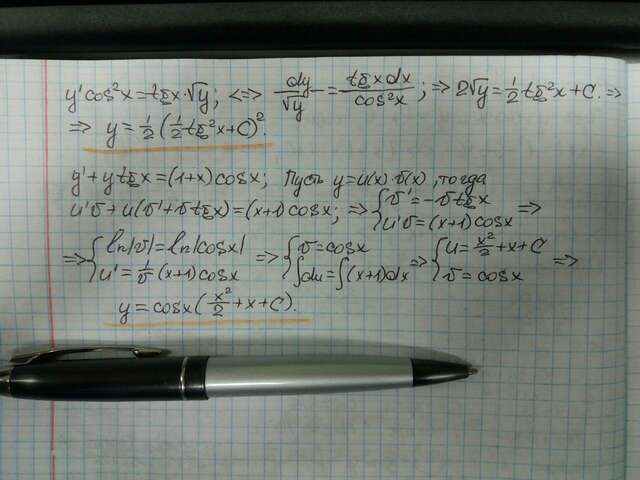 y'cos²x=tgx·√y; <=> dy/√y = tgxdx/cos²x; => 2√y=1/2tg²x+C. =>
=> y=1/2(1/2tg²x+C)².
y'+ytgx=(1+x)cosx; Пусть y=u(x)·v(x), тогда
u'v+u(v'+vtgx)=(x+1)cosx; => {v'=-vtgx u'v=(x+1)cosx =>
=> {ln|v|=ln|cosx| u'=1/v(x+1)cosx => {v=cosx ∫du=∫(x+1)dx => {u=x²/2+x+C v=cosx =>
y=cosx(x²/2+x+C).